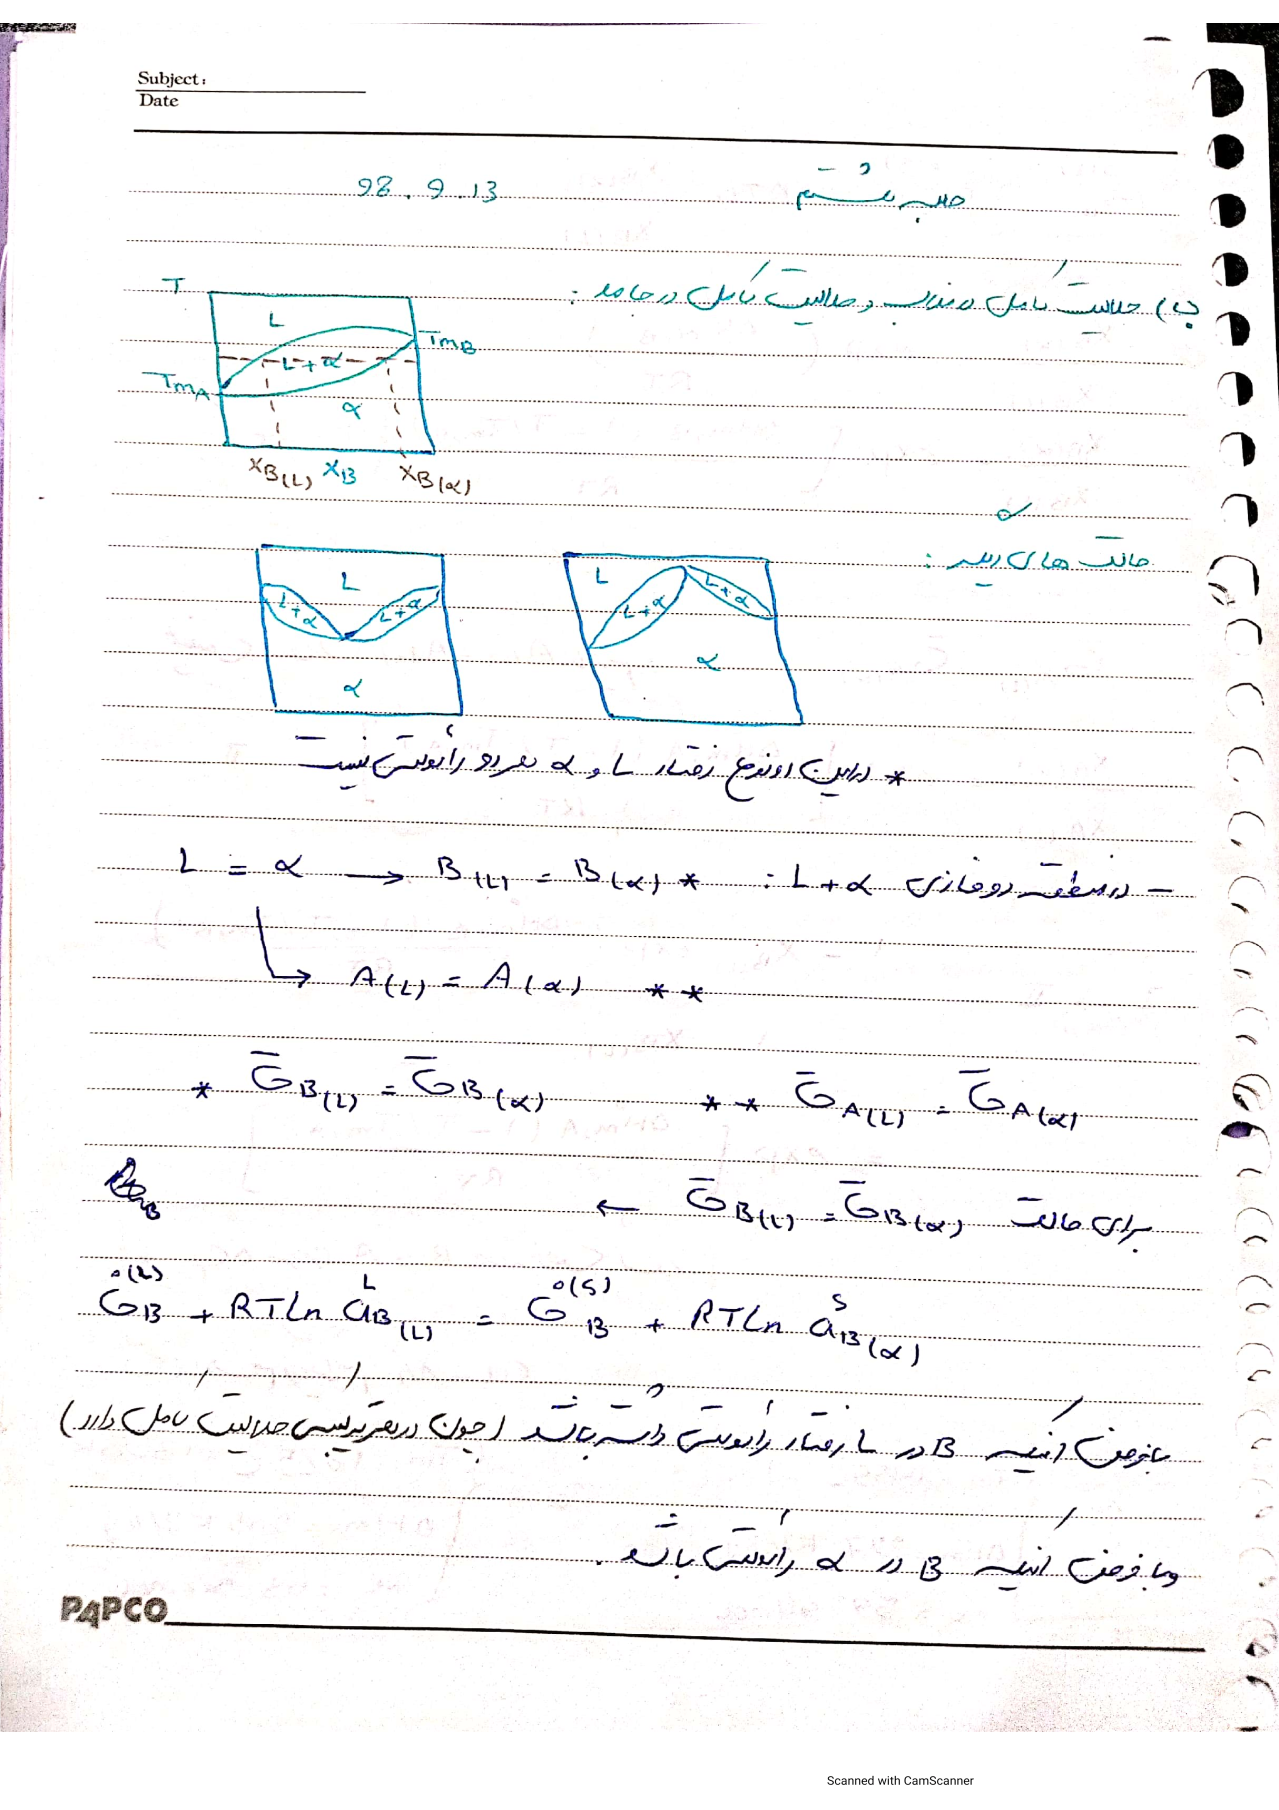 Subject:
Date
جلسه هشتم 98.9.13
ب) حلالیت کامل در مذاب و حلالیت کامل در جامد:
T
L
TmB
L+α
TmA
α
XB(L) XB XB(α)
حالت های دیگر:
L L
L+α L+α L+α L+α
α α
* در این دو نوع رفتار L و α هر دو رائولتی نیست
- در منطقه دو فازی L+α : * B(L) = B(α) ← L = α
A(L) = A(α) **
* ḠB(L) = ḠB(α) ** ḠA(L) = ḠA(α)
برای حالت ḠB(L) = ḠB(α) ←
G°(L)B + RTLn aLB(L) = G°(S)B + RTLn aSB(α)
با فرض اینکه B در L رفتار رائولتی داشته باشد (چون در هر ترکیبی حلالیت کامل دارد)
و با فرض اینکه B در α رائولتی باشد.
PAPCO
Scanned with CamScanner